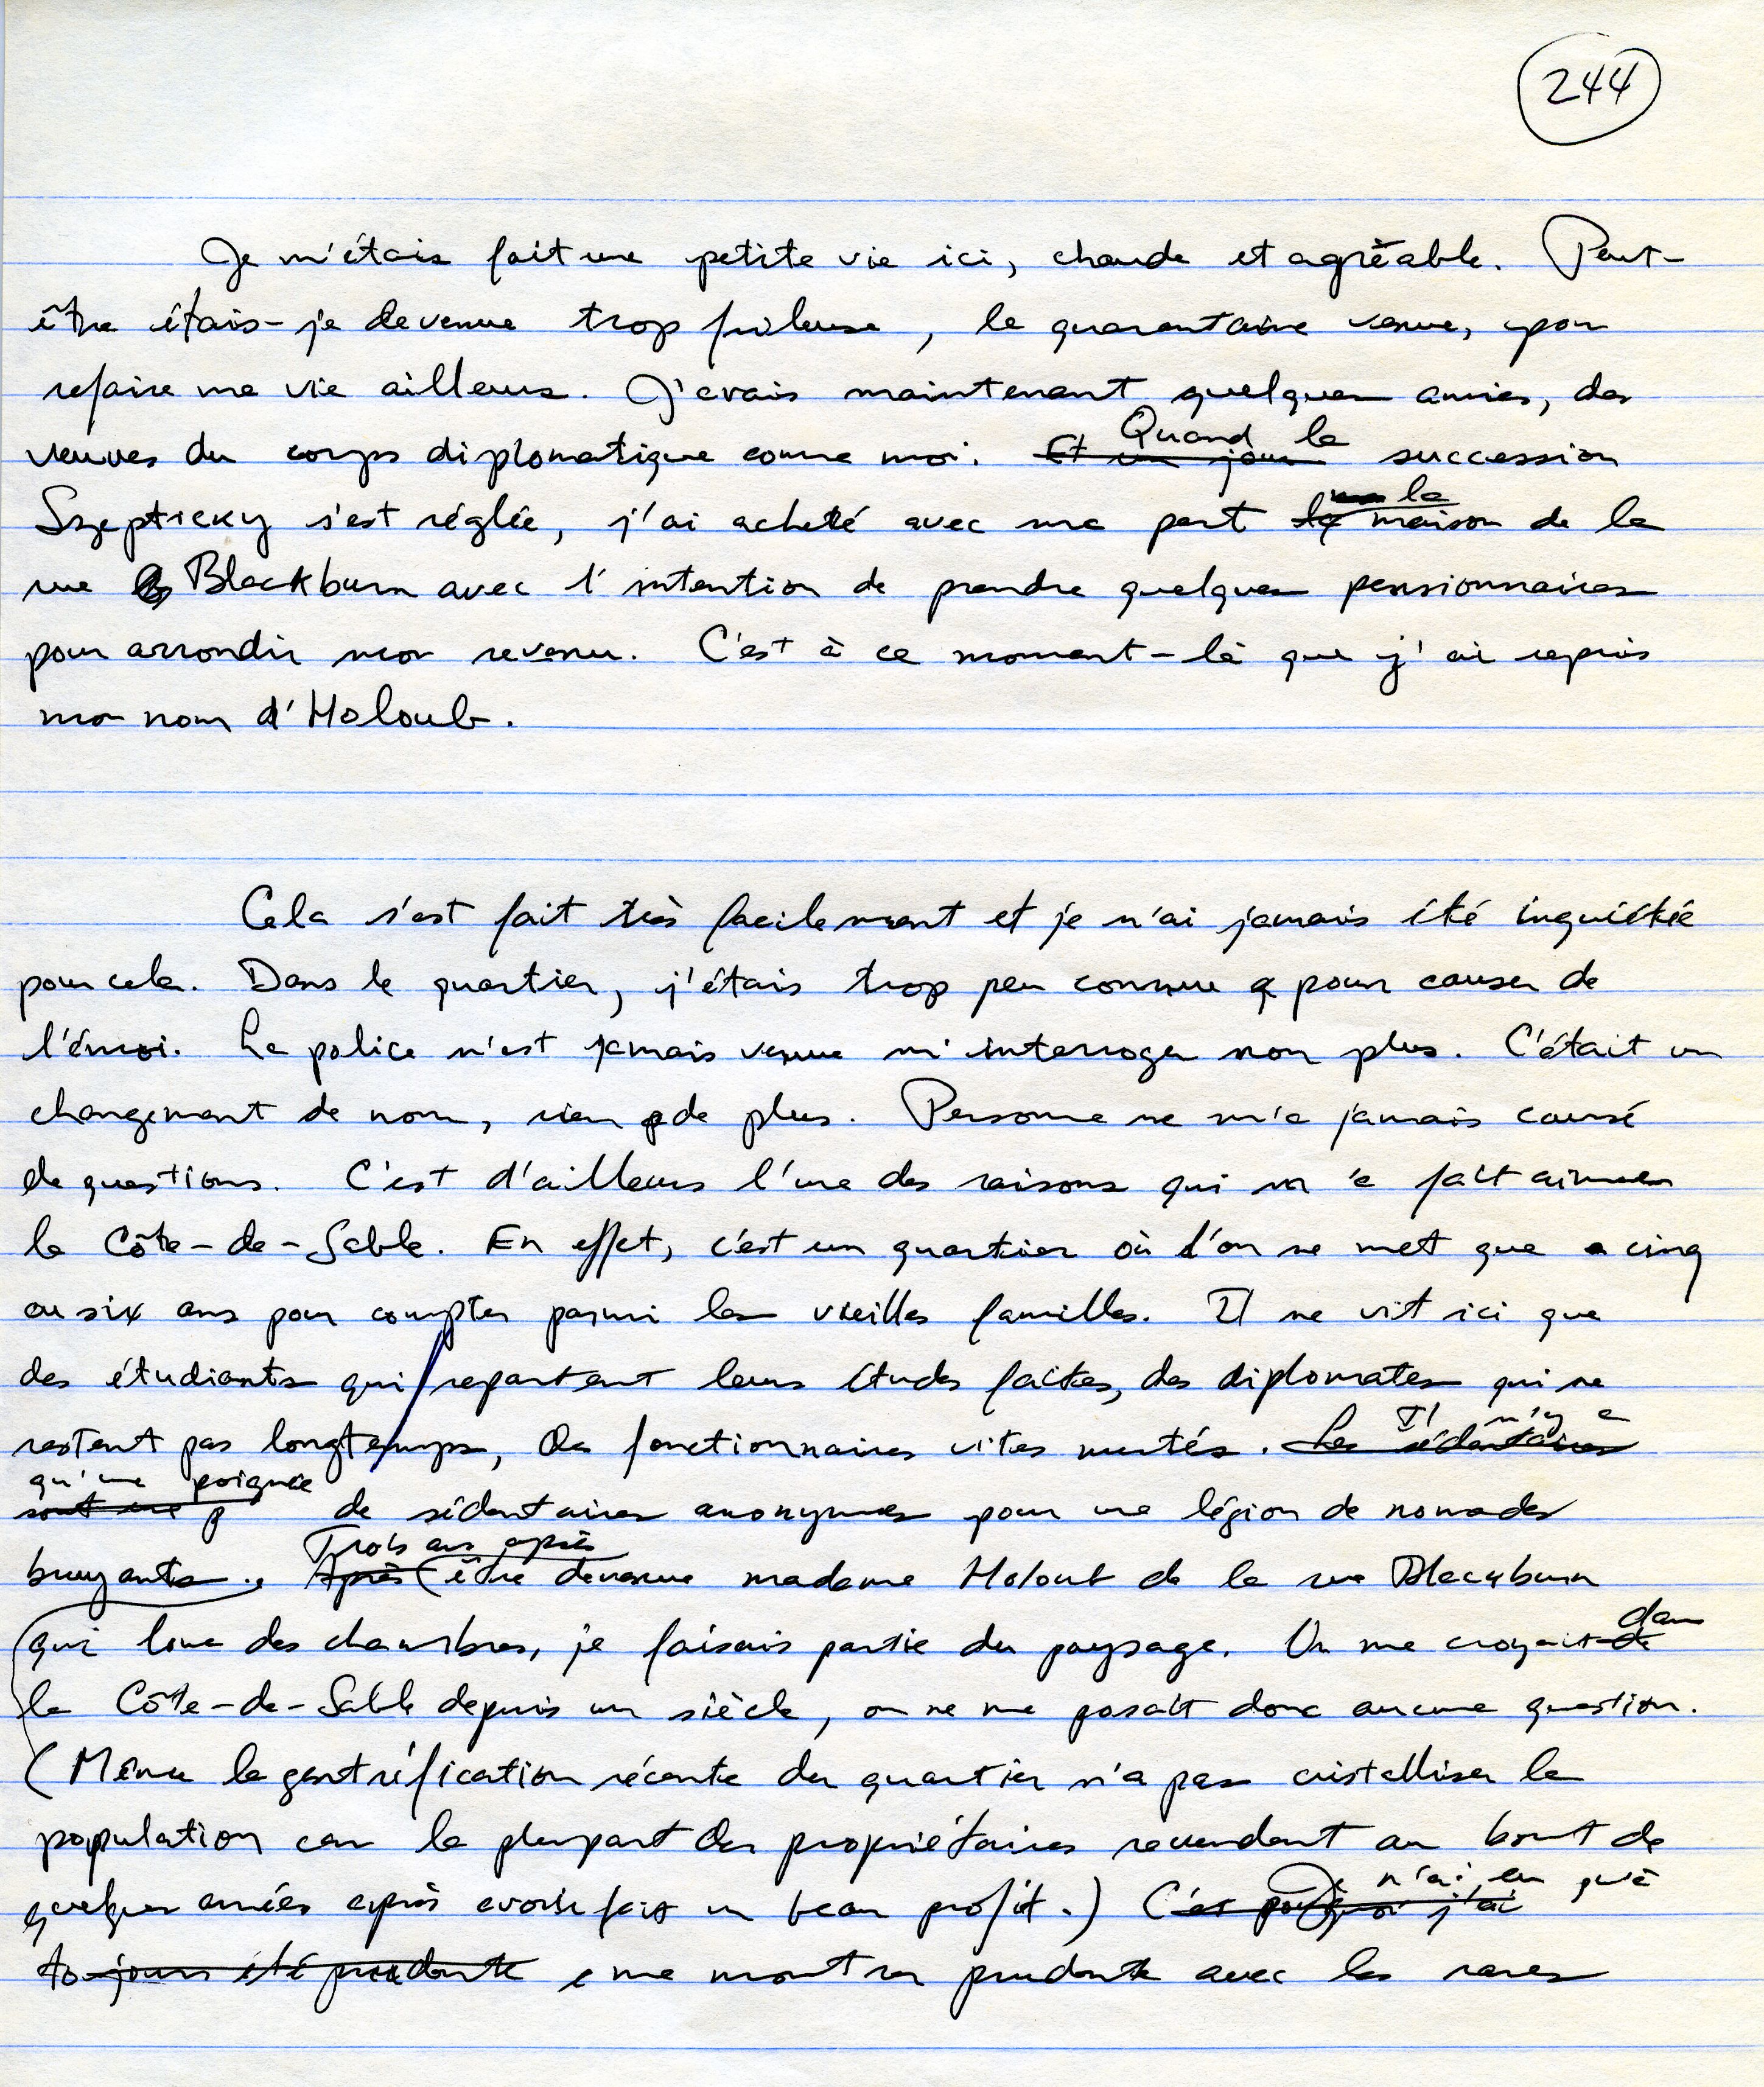 244
Je m'étais fait une petite vie ici, chaude et agréable. Peut-
être étais-je devenue trop frileuse, la quarantaine venue, pour
refaire ma vie ailleurs. J'avais maintenant quelques amies, des
veuves du corps diplomatique comme moi. Et un jour Quand la succession
Szepticky s'est réglée, j'ai acheté avec ma part la maison de la
rue Blackburn avec l'intention de prendre quelques pensionnaires
pour arrondir mon revenu. C'est à ce moment-là que j'ai repris
mon nom d'Holoub.
Cela s'est fait très facilement et je n'ai jamais été inquiétée
pour cela. Dans le quartier, j'étais trop peu connue pour causer de
l'émoi. La police n'est jamais venue m'interroger non plus. C'était un
changement de nom, rien de plus. Personne ne m'a jamais causé
de questions. C'est d'ailleurs l'une des raisons qui m'a fait aimer
la Côte-de-Sable. En effet, c'est un quartier où l'on ne met que cinq
ou six ans pour compter parmi les vieilles familles. Il ne vit ici que
des étudiants qui repartent leurs études faites, des diplomates qui ne
restent pas longtemps, des fonctionnaires vites mutés. Les sédentaires Il n'y a
sont une p qu'une poignée de sédentaires anonymes pour une légion de nomades
bruyants. Après Trois ans après être devenue madame Holoub de la rue Blackburn
qui loue des chambres, je faisais partie du paysage. On me croyait de dans
la Côte-de-Sable depuis un siècle, on ne me posait donc aucune question.
(Même la gentrification récente du quartier n'a pas cristalliser la
population car la plupart des propriétaires revendent au bout de
quelques années après avoir fait un beau profit.) C'est pourquoi j'ai Je n'ai eu qu'à
toujours été prudente me montrer prudente avec les rares